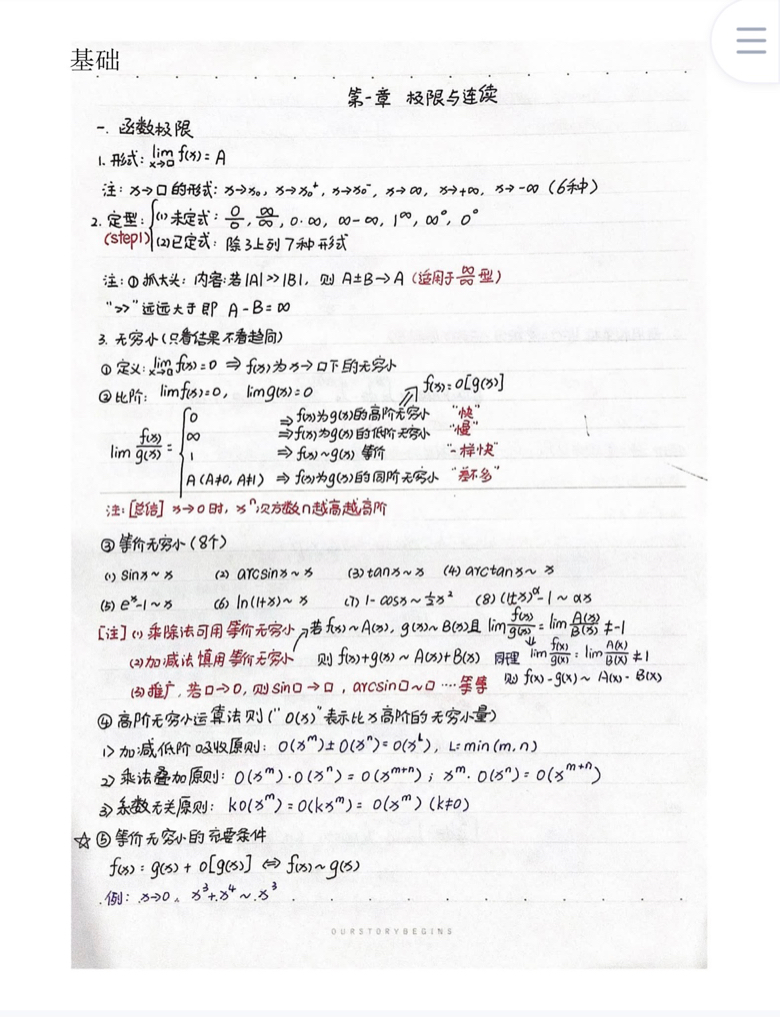 基础
第一章 极限与连续
一. 函数极限
1. 形式: lim x→□ f(x) = A
注: x→□的形式: x→x₀, x→x₀⁺, x→x₀⁻, x→∞, x→+∞, x→-∞ (6种)
2. 定型: (1) 未定式: 0/0, ∞/∞, 0·∞, ∞-∞, 1^∞, ∞⁰, 0⁰
(step1) (2) 已定式: 除了上列7种形式
注: ① 抓大头: 内容: 若|A|>>|B|, 则 A±B→A (适用于 ∞/∞ 型)
">>" 远远大于即 A-B=∞
3. 无穷小(只看结果不看趋向)
① 定义: lim x→□ f(x)=0 ⇒ f(x)为x→□下的无穷小
② 比阶: limf(x)=0, limg(x)=0 f(x)=o[g(x)]
lim f(x)/g(x) = 0 ⇒ f(x)为g(x)的高阶无穷小 "快"
∞ ⇒ f(x)为g(x)的低阶无穷小 "慢"
1 ⇒ f(x)~g(x) 等价 "一样快"
A (A≠0, A≠1) ⇒ f(x)为g(x)的同阶无穷小 "差不多"
注: [总结] x→0时, xⁿ次方数n越高越高阶
③ 等价无穷小(8个)
(1) sinx~x (2) arcsinx~x (3) tanx~x (4) arctanx~x
(5) eˣ-1~x (6) ln(1+x)~x (7) 1-cosx~½x² (8) (1+x)^α-1~αx
[注] (1) 乘除法可用等价无穷小 若f(x)~A(x), g(x)~B(x)且 lim f(x)/g(x) = lim A(x)/B(x) ≠-1
(2) 加减法慎用等价无穷小 则 f(x)+g(x)~A(x)+B(x) 同理 lim f(x)/g(x) = lim A(x)/B(x) ≠1
(3) 推广, 若□→0, 则sin□→□, arcsin□~□ ····等等 则 f(x)-g(x)~A(x)-B(x)
④ 高阶无穷小运算法则("o(x)"表示比x高阶的无穷小量)
1> 加减低阶吸收原则: o(xᵐ)±o(xⁿ)=o(xᴸ), L=min(m,n)
2> 乘法叠加原则: o(xᵐ)·o(xⁿ)=o(xᵐ⁺ⁿ); xᵐ·o(xⁿ)=o(xᵐ⁺ⁿ)
3> 系数无关原则: ko(xᵐ)=o(kxᵐ)=o(xᵐ) (k≠0)
☆ ⑤ 等价无穷小的充要条件
f(x)=g(x)+o[g(x)] ⇔ f(x)~g(x)
例: x→0, x³+x⁴~x³
OURSTORYBEGINS